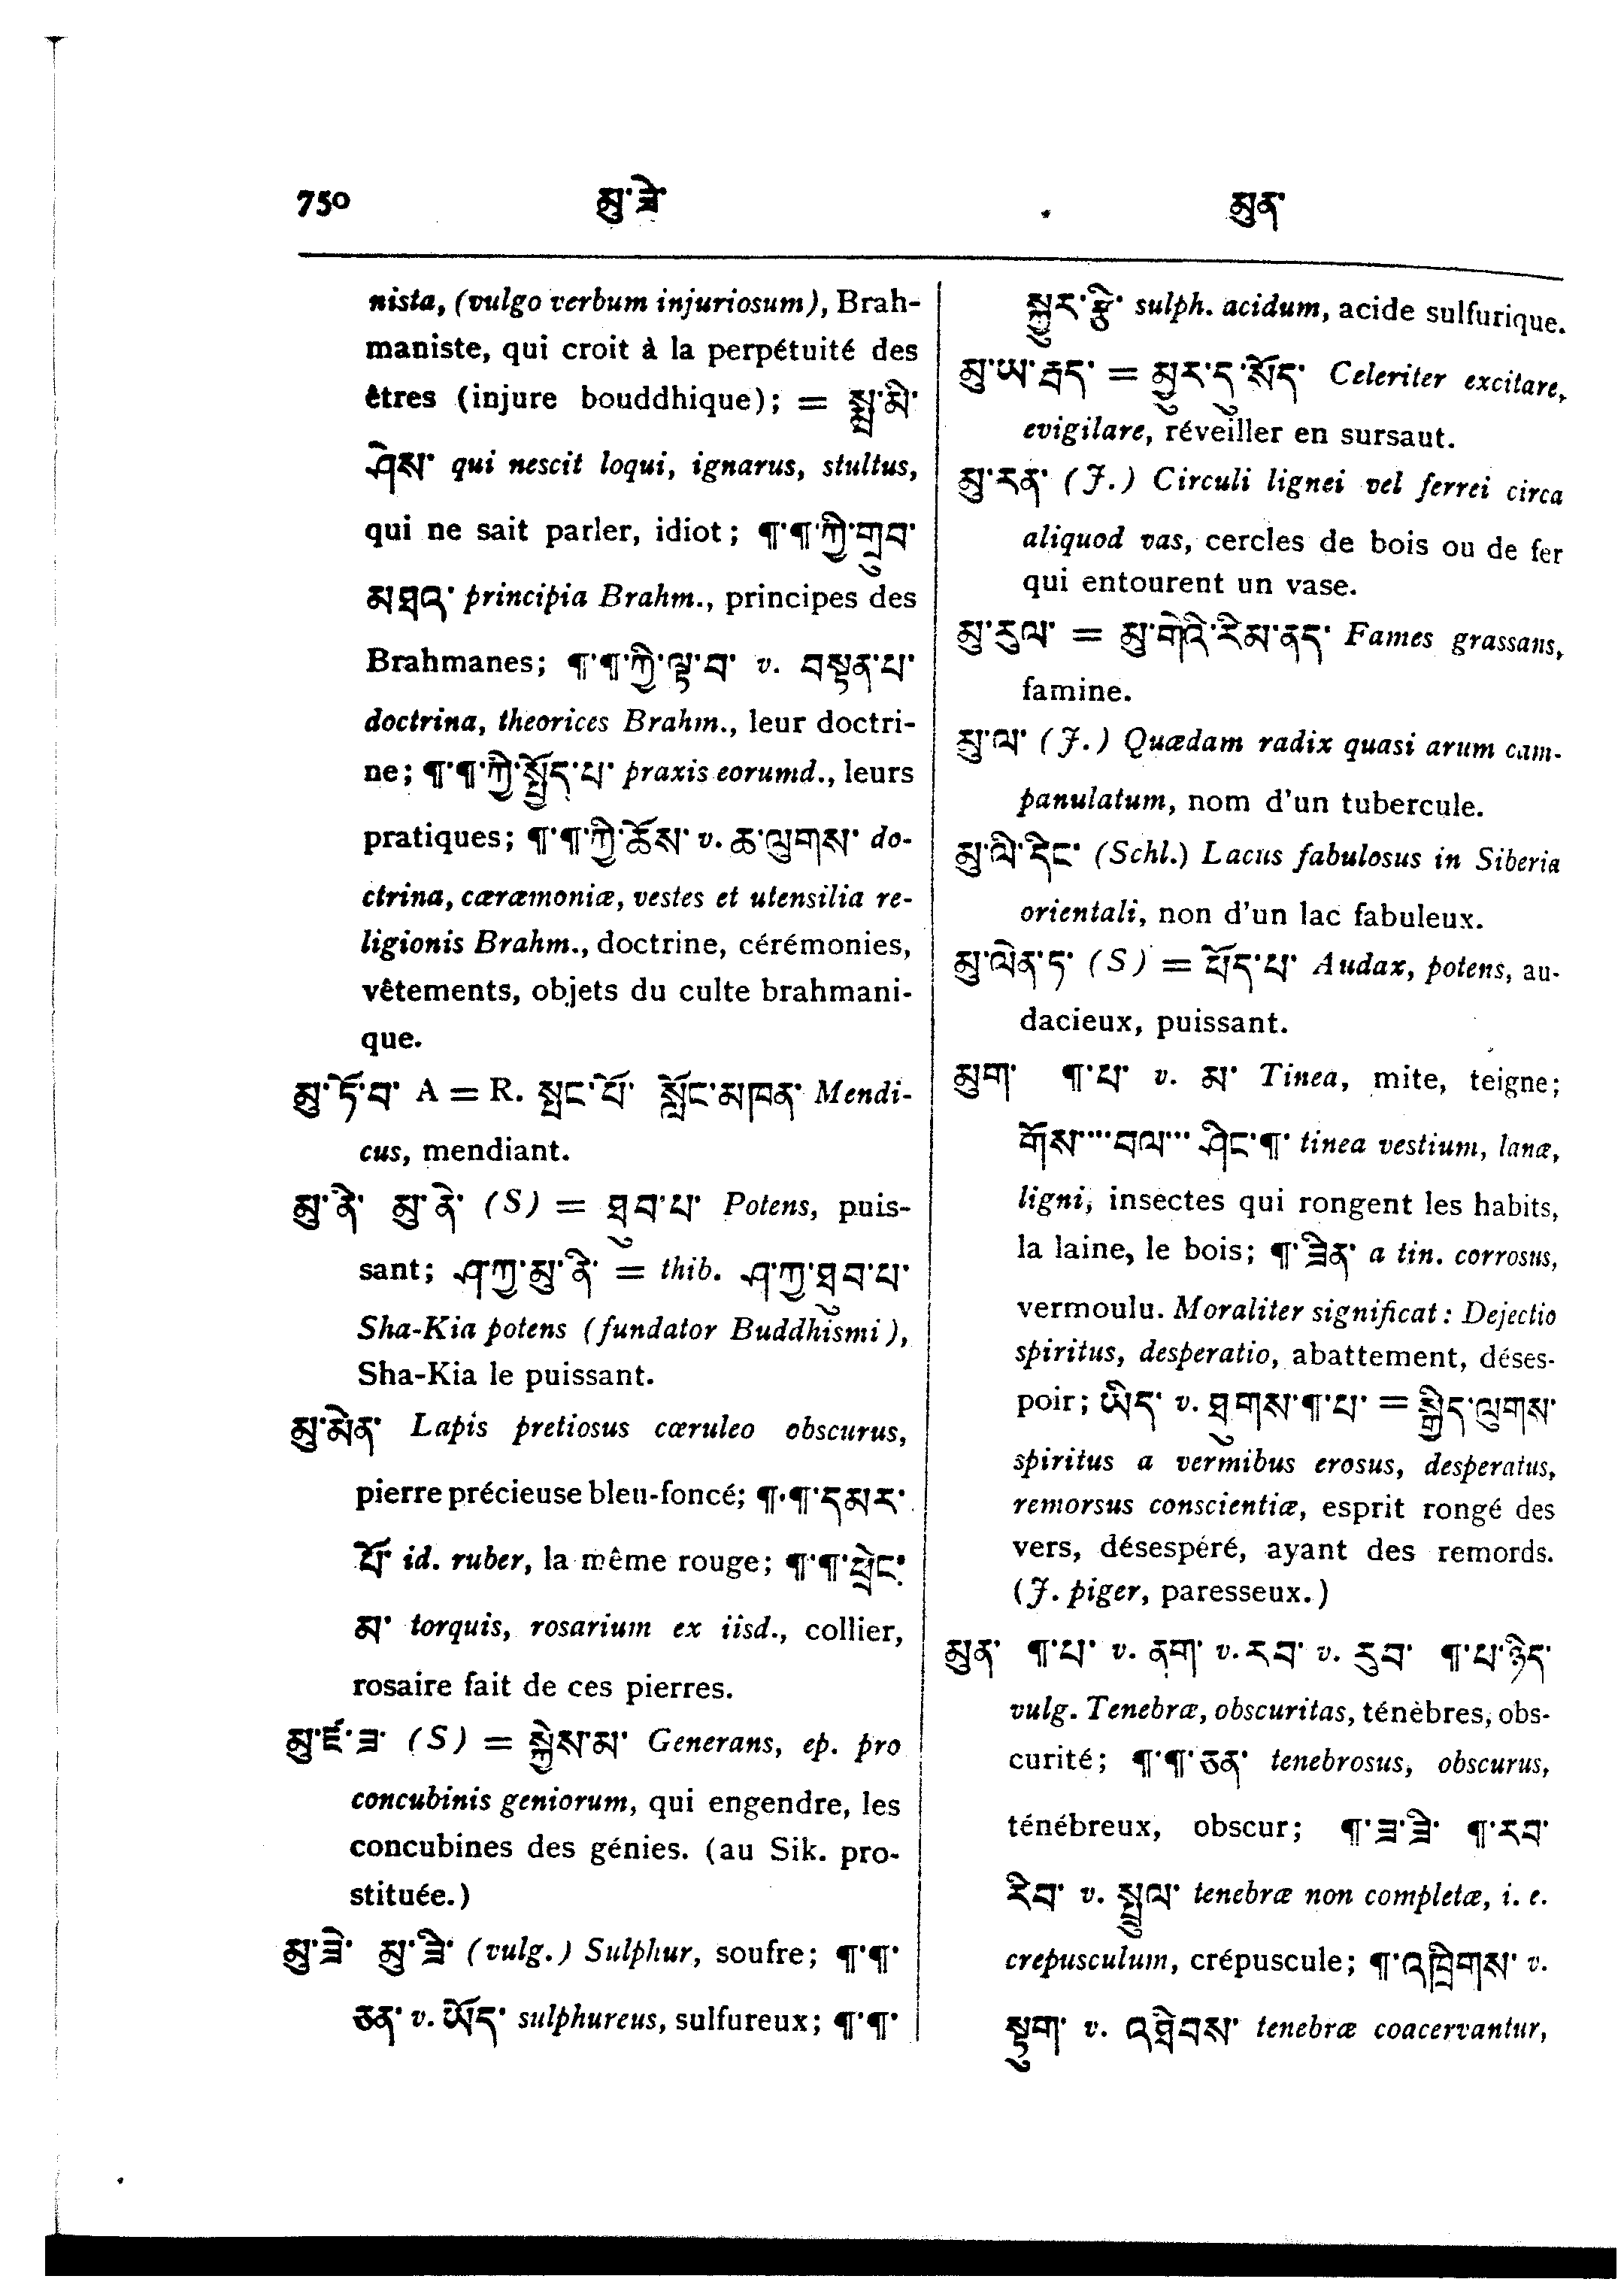 750 མུ་ཟེ་ མུན་
nista, (vulgo verbum injuriosum), Brah-
maniste, qui croit à la perpétuité des
êtres (injure bouddhique); = སྨྲ་མི་
ཤེས་ qui nescit loqui, ignarus, stultus,
qui ne sait parler, idiot; ¶་¶་ཀྱི་གྲུབ་
མཐའ་ principia Brahm., principes des
Brahmanes; ¶་¶་ཀྱི་ལྟ་བ་ v. བསྟན་པ་
doctrina, theorices Brahm., leur doctri-
ne; ¶་¶་ཀྱི་སྤྱོད་པ་ praxis eorumd., leurs
pratiques; ¶་¶་ཀྱི་ཆོས་ v. ཆ་ལུགས་ do-
ctrina, cæræmoniæ, vestes et utensilia re-
ligionis Brahm., doctrine, cérémonies,
vêtements, objets du culte brahmani-
que.
མུ་ཏོ་བ་ A = R. སྤྲང་པོ་ སློང་མཁན་ Mendi-
cus, mendiant.
མུ་ནེ་ མུ་ནེ་ (S) = ཐུབ་པ་ Potens, puis-
sant; ཤ་ཀྱ་མུ་ནི་ = thib. ཤ་ཀྱ་ཐུབ་པ་
Sha-Kia potens (fundator Buddhismi),
Sha-Kia le puissant.
མུ་མེན་ Lapis pretiosus cæruleo obscurus,
pierre précieuse bleu-foncé; ¶་¶་དམར་
པོ་ id. ruber, la même rouge; ¶་¶་ཕྲེང་
མ་ torquis, rosarium ex iisd., collier,
rosaire fait de ces pierres.
(S) = སྐྱེས་མ་ Generans, ep. pro
concubinis geniorum, qui engendre, les
concubines des génies. (au Sik. pro-
stituée.)
མུ་ཟེ་ མུ་ཟི་ (vulg.) Sulphur, soufre; ¶་¶་
ཅན་ v. ཡོད་ sulphureus, sulfureux; ¶་¶་
སྐྱུར་རྩི་ sulph. acidum, acide sulfurique.
མུ་ཡ་རྦད་ = མྱུར་དུ་སོད་ Celeriter excitare,
evigilare, réveiller en sursaut.
མུ་རན་ (J.) Circuli lignei vel ferrei circa
aliquod vas, cercles de bois ou de fer
qui entourent un vase.
མུ་རུལ་ = མུ་གེའི་རིམ་ནད་ Fames grassans,
famine.
མུ་ལ་ (J.) Quædam radix quasi arum cam-
panulatum, nom d'un tubercule.
མུ་ལི་དིང་ (Schl.) Lacus fabulosus in Siberia
orientali, non d'un lac fabuleux.
མུ་ལེན་ད་ (S) = ཕོད་པ་ Audax, potens, au-
dacieux, puissant.
མུག་ ¶་པ་ v. མ་ Tinea, mite, teigne;
གོས་…་བལ་…་ཤིང་¶་ tinea vestium, lanæ,
ligni, insectes qui rongent les habits,
la laine, le bois; ¶་ཟིན་ a tin. corrosus,
vermoulu. Moraliter significat: Dejectio
spiritus, desperatio, abattement, déses-
poir; ཡིད་ v. ཐུགས་¶་པ་ = སྒྱིད་ལུགས་
spiritus a vermibus erosus, desperatus,
remorsus conscientiæ, esprit rongé des
vers, désespéré, ayant des remords.
(J. piger, paresseux.)
མུན་ ¶་པ་ v. ནག་ v. རབ་ v. རུབ་ ¶་པ་ཉིད་
vulg. Tenebræ, obscuritas, ténèbres, obs-
curité; ¶་¶་ཅན་ tenebrosus, obscurus,
ténébreux, obscur; ¶་ཟ་ཟི་ ¶་རབ་
རིབ་ v. སྤྲུལ་ tenebræ non completæ, i. e.
crepusculum, crépuscule; ¶་འཁྲིགས་ v.
སྟུག་ v. འཐིབས་ tenebræ coacervantur,